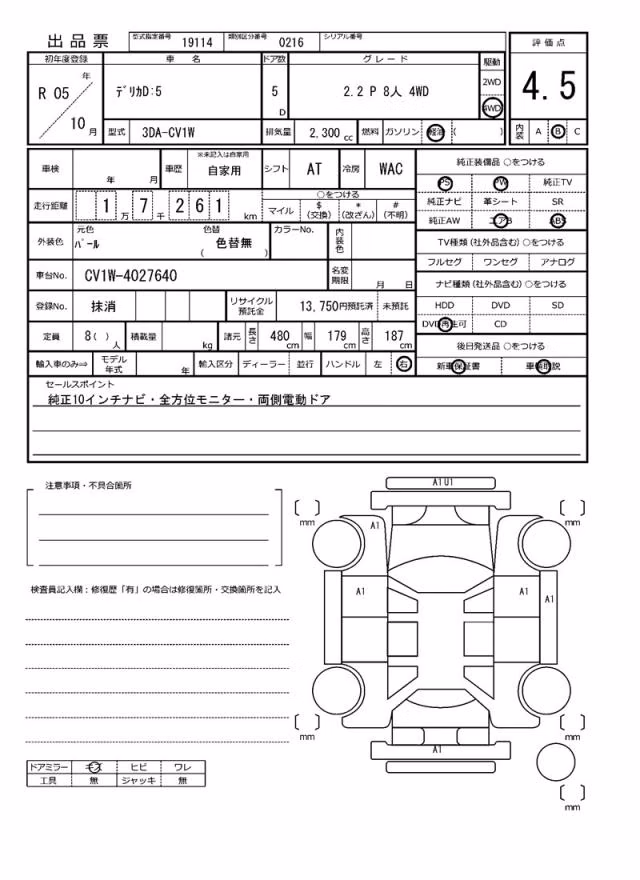 出品票 型式指定番号 19114 類別区分番号 0216 シリアル番号
評価点
4.5
内装 A B C
初年度登録 車名 ドア数 グレード 駆動
R 05 年 10 月
ﾃﾞﾘｶD:5 5 D 2.2 P 8人 4WD
2WD
4WD
型式 3DA-CV1W 排気量 2,300 cc 燃料 ガソリン 軽油 ( )
車検 年 月 車歴 ※未記入は自家用 自家用 シフト AT 冷房 WAC
走行距離 1 万 7 千 2 6 1 km
○をつける
マイル $ (交換) * (改ざん) # (不明)
外装色 元色 ﾊﾟｰﾙ 色替 色替無 ( ) カラーNo. 内装色
車台No. CV1W-4027640 名変期限 月 日
登録No. 抹消 リサイクル預託金 13,750円預託済 未預託
定員 8( ) 人 積載量 kg 諸元 長さ 480 cm 幅 179 cm 高さ 187 cm
輸入車のみ⇒ モデル年式 年 輸入区分 ディーラー 並行 ハンドル 左 右
純正装備品 ○をつける
PS PW 純正TV
純正ナビ 革シート SR
純正AW エアB ABS
TV種類 (社外品含む) ○をつける
フルセグ ワンセグ アナログ
ナビ種類 (社外品含む) ○をつける
HDD DVD SD
DVD再生可 CD
後日発送品 ○をつける
新車保証書 車輌取説
セールスポイント
純正10インチナビ・全方位モニター・両側電動ドア
注意事項・不具合箇所
検査員記入欄：修復歴「有」の場合は修復箇所・交換箇所を記入
ドアミラー キズ ヒビ ワレ
工具 無 ジャッキ 無
A1U1
mm
mm
A1
A1
A1
A1
mm
mm
A1
mm